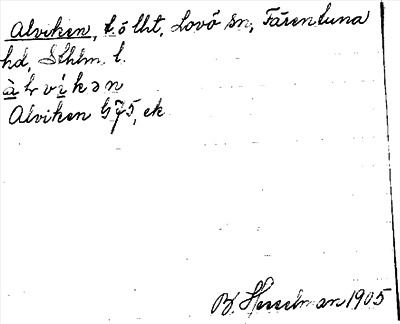 Alviken, t ö lht, Lovö sn, Färentuna
hd, Sthlm. l.
à l v i k ə n
Alviken 675, ek
B. Hesselman 1905